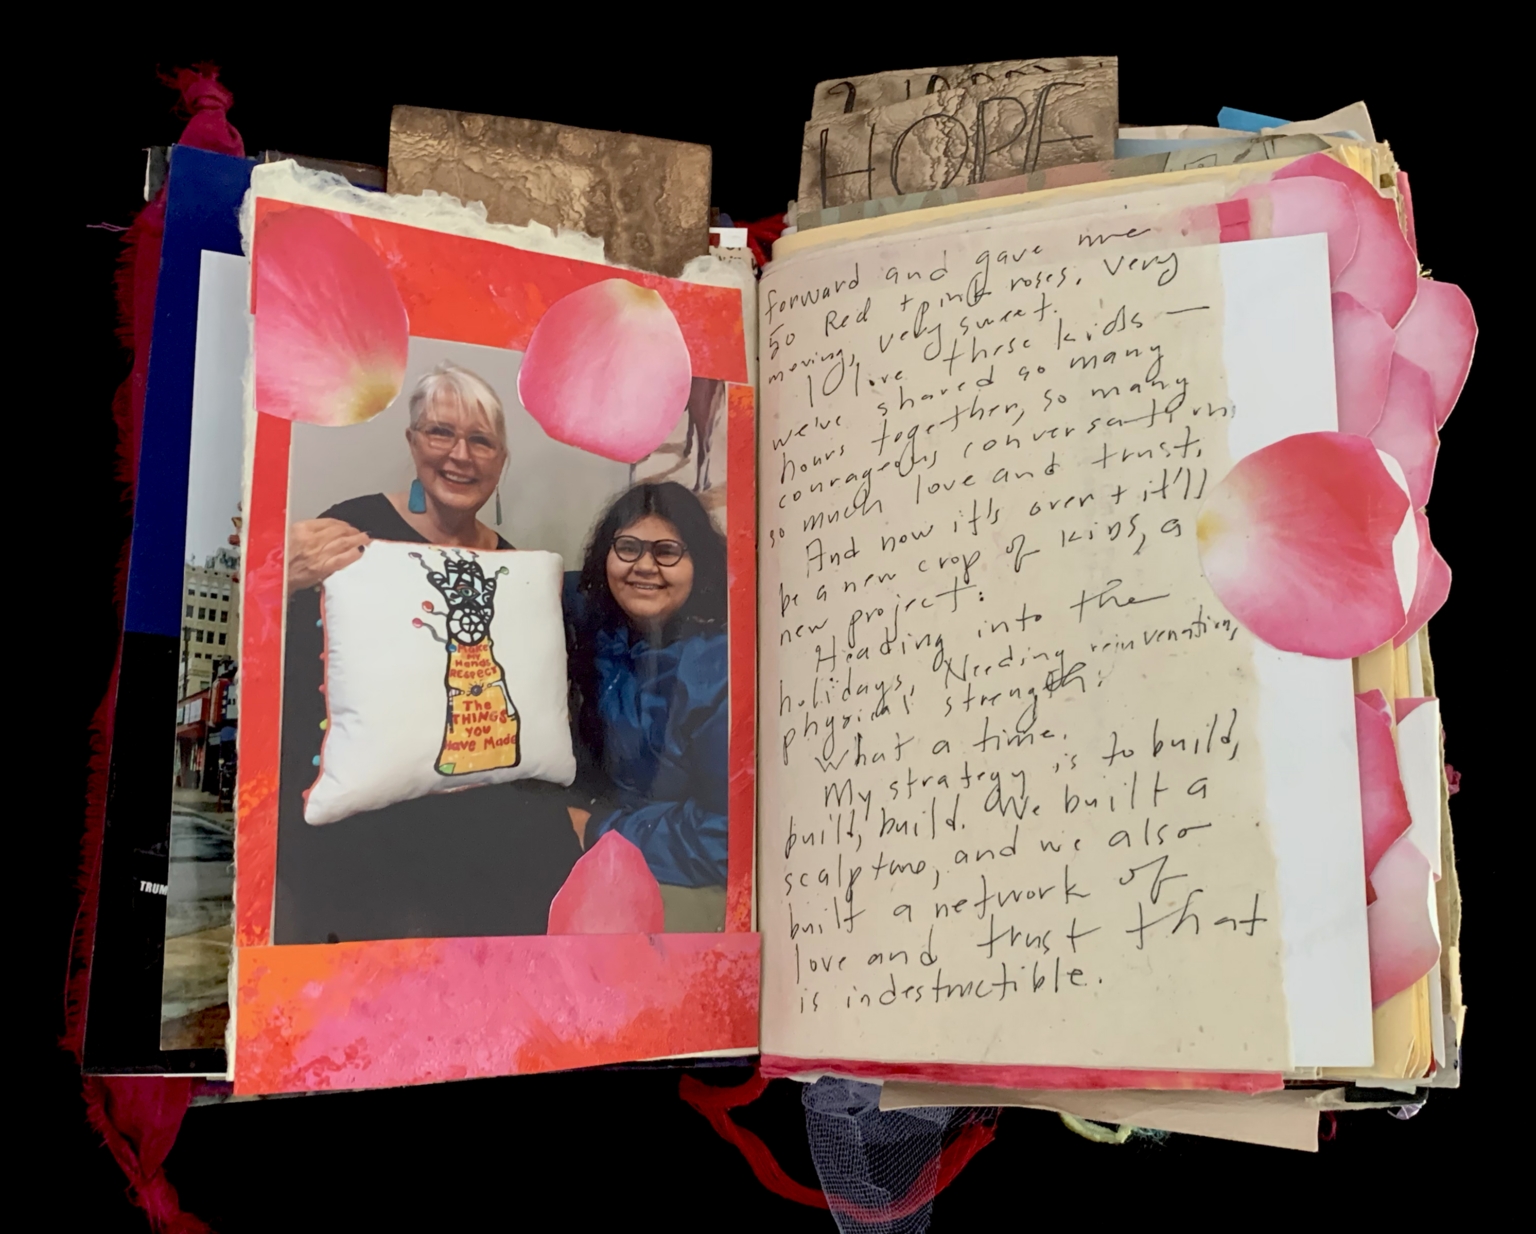 HOPE
TRUM
Make
my
Hands
RESPECT
The
THINGS
YOU
Have Made
forward and gave me
50 Red + pink roses. Very
moving, very sweet.
I love these kids —
we've shared so many
hours together, so many
courageous conversations
so much love and trust.
And now it's over + it'll
be a new crop of kids, a
new project.
Heading into the
holidays. Needing reinvention,
physical strength.
What a time.
My strategy is to build,
build, build. We built a
sculpture, and we also
built a network of
love and trust that
is indestructible.